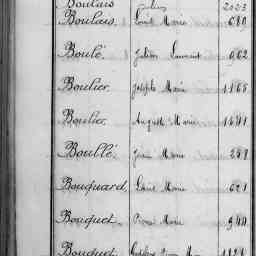 Boulais Julien 2023
Boulais, Louis Marie 680
Boulé, Julien Laurent 962
Boulier, Joseph Marie 1165
Boulier, Auguste Marie 1641
Boullé, Jean Marie 287
Bouquard, Louis Marie 621
Bouquet, Pierre Marie 940
Bouquet, Marie